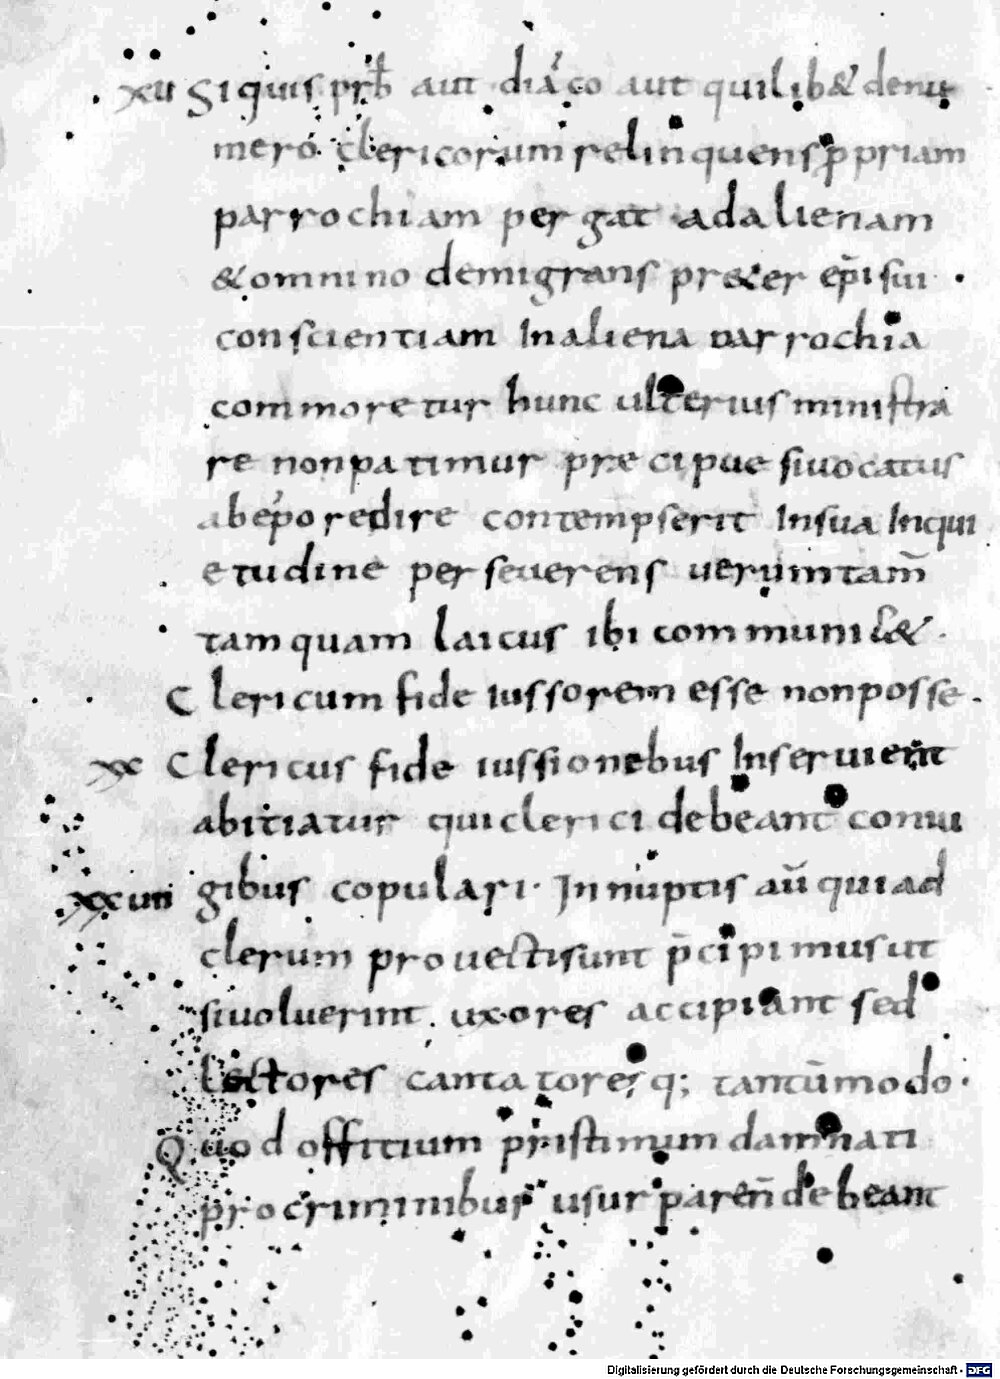 xu Si quis prb aut diaco aut quilib& denu
mero clericorum relinquens ppriam
parrochiam pergat ad alienam
& omnino demigrans pr&er epi sui ·
conscientiam In aliena parrochia
commoretur hunc ulterius ministra
re non patimur præcipue si uocatus
ab epo redire contempserit In sua Inqui
etudine perseuerens uerumtam̅
tamquam laicus ibi communic& ·
Clericum fide iussorem esse non posse ·
xx Clericus fide iussionebus Inseruient
abitiatur qui clerici debeant coniu
xxuii gibus copulari · In nuptis au̅ qui ad
clerum prouecti sunt p̅cipimus ut
si uoluerint uxores accipiant sed
Lectores cantatores q; tantu̅modo ·
Quod offitium pristinum damnati
pro criminibus usurparen̅ debeant
Digitalisierung gefördert durch die Deutsche Forschungsgemeinschaft - DFG